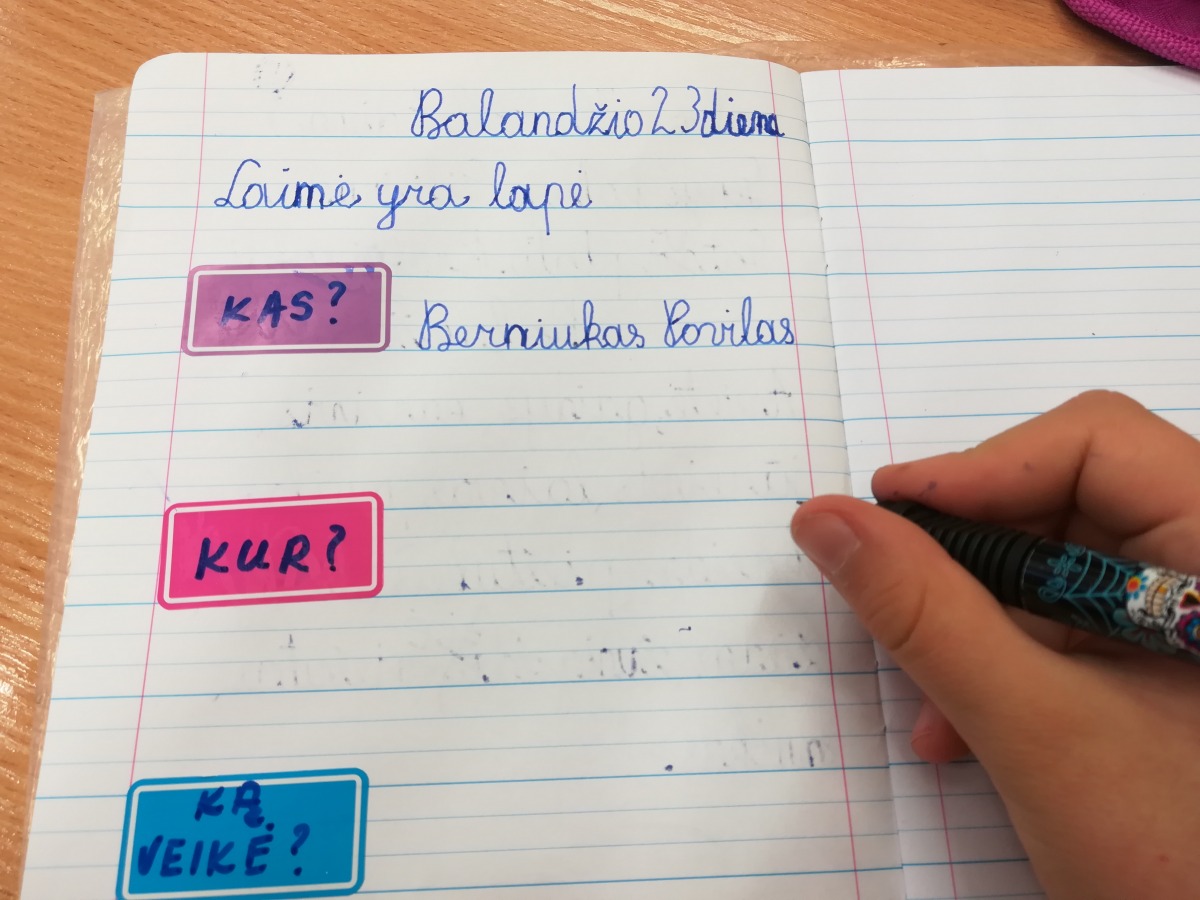 Balandžio 23 diena
Laimė yra lapė
KAS? Berniukas Povilas
KUR?
KĄ
VEIKĖ?